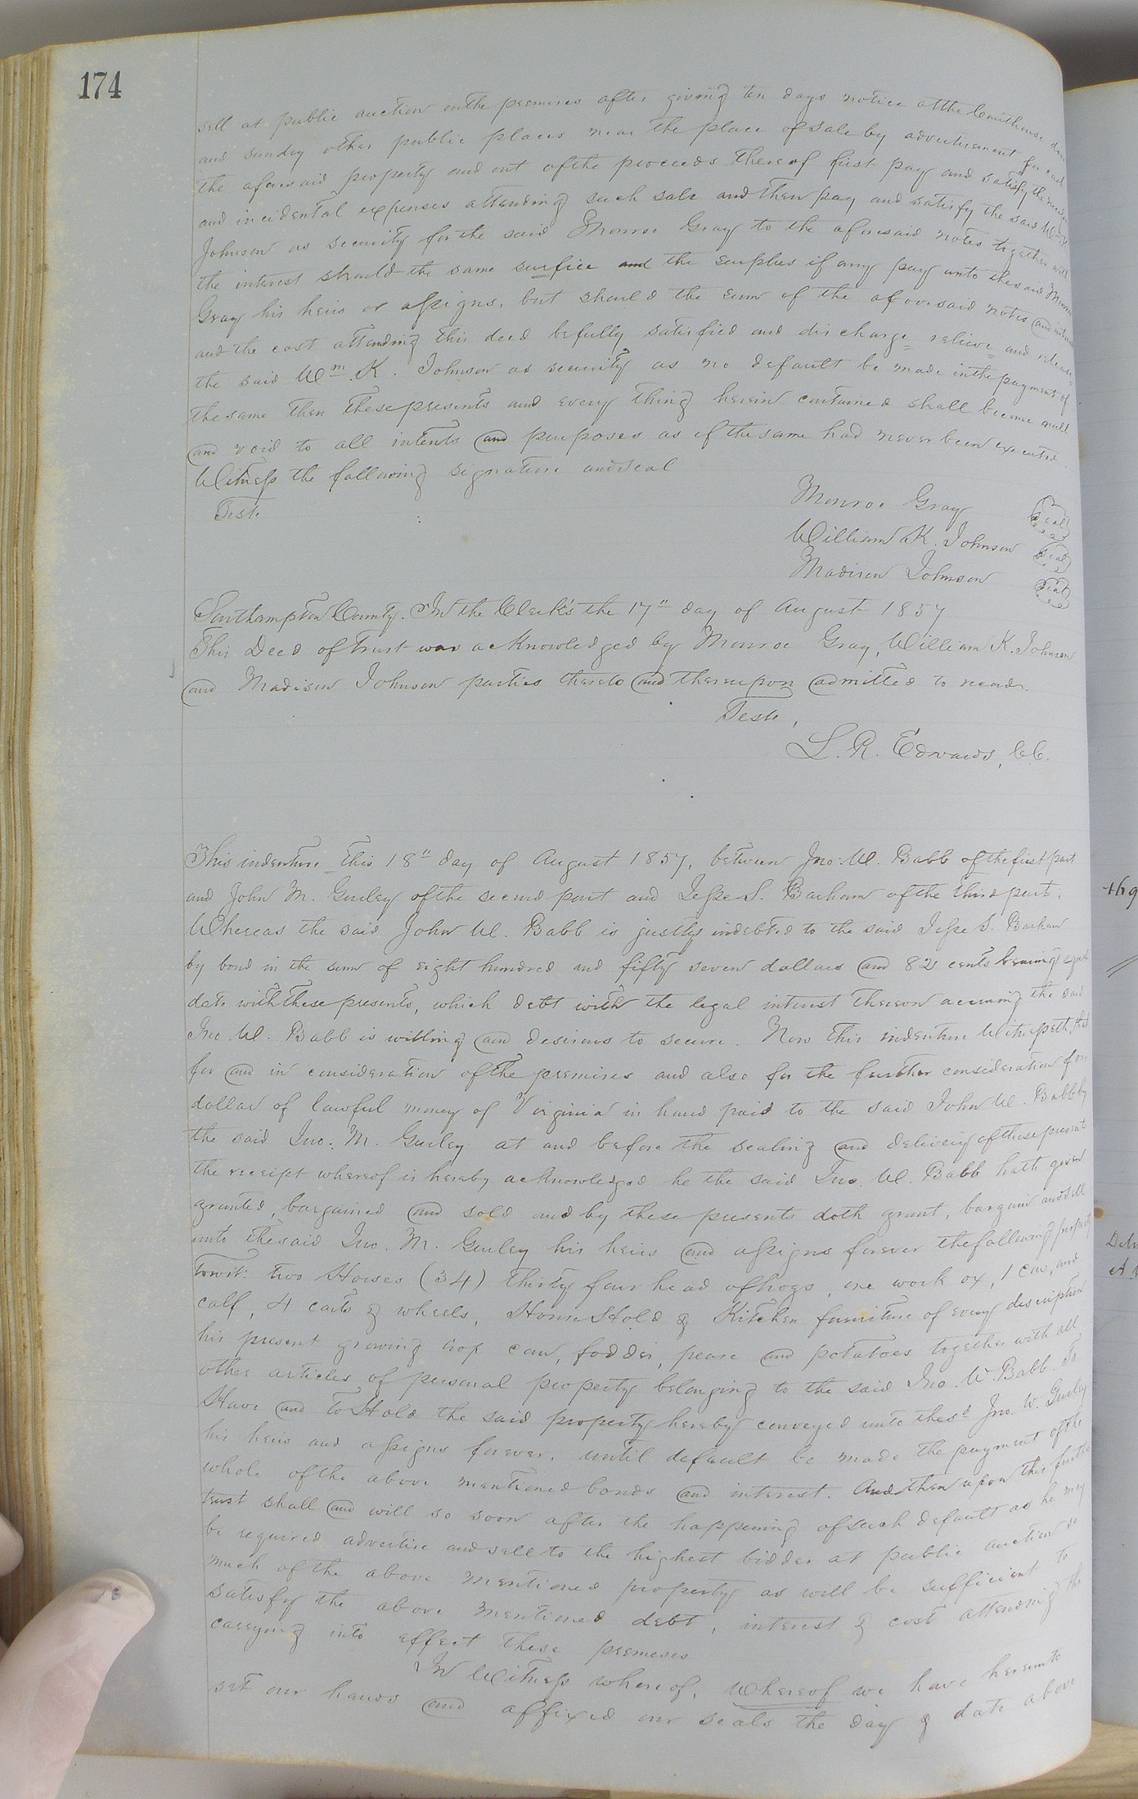 174
sell at public auction onthe premises after giving ten days notice atthe Courthouse door
and sunday other public places near the place of sale by advertisement for cash
the aforesaid property and out ofthe proceeds thereof first pay and satisfy the
and incidental expenses attending such sale and then pay and satisfy the said Wm K
Johnson as security for the said Monroe Gray to the aforesaid notes together with
the interest should the same surfice and the surplus if any pay unto the said Monroe
Gray his heirs or assigns, but should the sum of the aforesaid notes and
and the cost attending this deed be fully satisfied and discharge = relieve = and release
the said Wm. K. Johnson as security as no default be made inthe payment of
the same then these presents and every thing herein contained shall become null
and void to all intents and purposes as if the same had never been executed.
Witness the following signature and seal
Teste
Monroe Gray Seal
William K. Johnson Seal
Madison Johnson Seal
Southampton County. In the Clerk's the 17" day of August 1857
This Deed of trust was acknowledged by Monroe Gray, William K. Johnson
and Madison Johnson parties thereto and thereupon admitted to record.
Teste,
L. R. Edwards, CC.
This indenture this 18" day of August 1857, between Jno. W. Babb of the first part
and John M. Gurley of the second part and Jesse S. Barham of the third part.
Whereas the said John W. Babb is justly indebted to the said Jesse S. Barham
by bond in the sum of eight hundred and fifty seven dollars and 82 cents bearing equal
date with these presents, which debt with the legal interest thereon accruing the said
Jno. W. Babb is willing and desirous to secure. Now this indenture Witnesseth, that
for and in consideration of the premises and also for the further consideration of one
dollar of lawful money of Virginia in hand paid to the said John W. Babb by
the said Jno. M. Gurley at and before the sealing and delivery of these presents
the receipt whereof is hereby acknowledged he the said Jno. W. Babb hath given
granted, bargained and sold and by these presents doth grant, bargain and sell
unto the said Jno. M. Gurley his heirs and assigns forever the following property
towit: two Horses (34) thirty four head of hogs, one work ox, 1 cow, and
calf, 4 carts & wheels, House Hold & Kitchen furniture of every description
his present growing crop corn, fodder, pease and potatoes together with all
other articles of personal property belonging to the said Jno. W. Babb. To
Have and to Hold the said property hereby conveyed unto the sd Jno. W. Gurley
his heirs and assigns forever, until default be made the payment of the
whole of the above mentioned bonds and interest. And then upon this further
trust shall and will so soon after the happening of such default as he may
be required advertise and sell to the highest bidder at public auction so
much of the above mentioned property as will be sufficient to
satisfy the above mentioned debt, interest & cost attending the
carrying into effect these premeses
In Witness whereof, whereof we have hereunto
set our hands and affixed our seals the day & date above